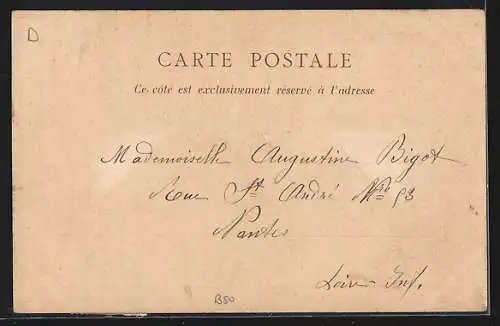 D
CARTE POSTALE
Ce côté est exclusivement réservé à l'adresse
Mademoiselle Augustine Bigot
Rue St André No 93
Nantes
Loire Inf.
B50